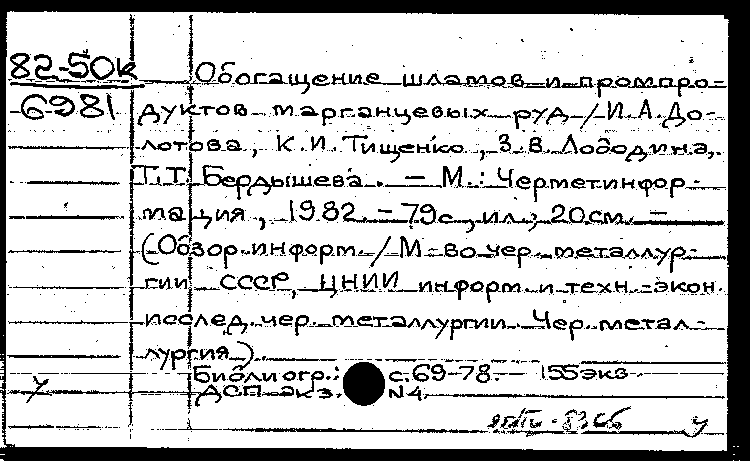 82-50к Обогащение шламов и промпро=
6981 дуктов марганцевых руд / И.А. До-
лотова, К.И. Тищенко, З.В. Лободина,
Т.Т. Бердышева. — М.: Черметинфор-
мация, 1982. — 79с., ил.; 20см. —
(Обзор. информ. / М-во чер. металлур-
гии СССР, ЦНИИ информ. и техн.-экон.
исслед. чер. металлургии. Чер. метал-
лургия).
у Библиогр.: с. 69-78. — 155 экз.
ДСП экз. N4.
у